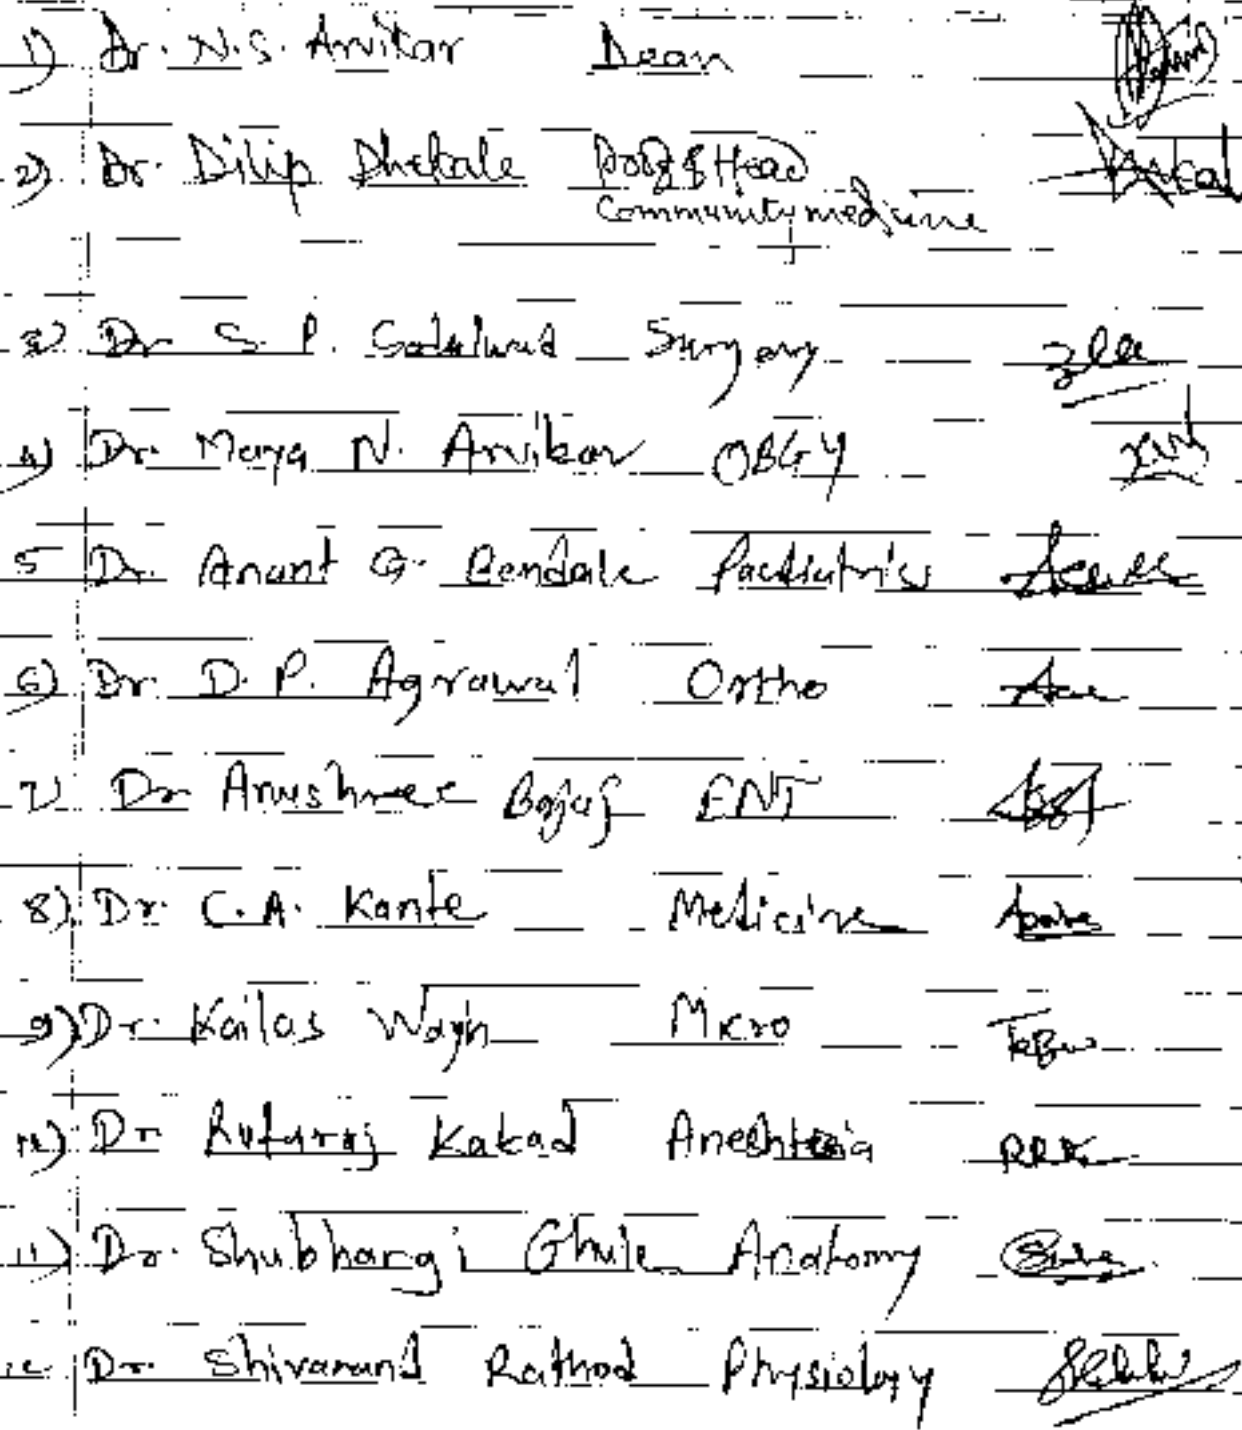 1) Dr. N.S. Arvikar Dean
2) Dr. Dilip Dhekale Prof & Head
Community medicine
3) Dr S. P. Surgery
4) Dr. Maya N. Arvikar OBGY
5 Dr. Anant G. Bendale Paediatrics
6) Dr. D. P. Agrawal Ortho
7) Dr Anushree Bajaj ENT
8) Dr. C.A. Kante Medicine
9) Dr. Kailas Wagh Micro
Dr Ruturaj Kakad
11) Dr. Shubhangi Ghule Anatomy
Dr. Shivanand Rathod Physiology